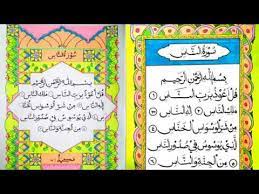 سُورَةُ النَّاسِ
بِسْمِ اللهِ الرَّحْمٰنِ الرَّحِيمِ
قُلْ أَعُوذُ بِرَبِّ النَّاسِ مَلِكِ النَّاسِ
إِلٰهِ النَّاسِ مِنْ شَرِّ الْوَسْوَاسِ
الْخَنَّاسِ الَّذِي يُوَسْوِسُ فِي صُدُورِ النَّاسِ
مِنَ الْجِنَّةِ وَالنَّاسِ
سُورَةُ النَّاسِ
بِسْمِ اللهِ الرَّحْمٰنِ الرَّحِيمِ
قُلْ أَعُوذُ بِرَبِّ النَّاسِ
مَلِكِ النَّاسِ إِلٰهِ النَّاسِ
مِنْ شَرِّ الْوَسْوَاسِ الْخَنَّاسِ
الَّذِي يُوَسْوِسُ فِي صُدُورِ النَّاسِ
مِنَ الْجِنَّةِ وَالنَّاسِ